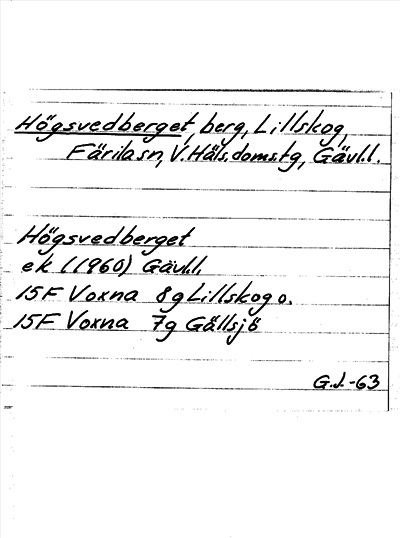 Högsvedberget, berg, Lillskog,
Färila sn, V. Häls. doms.tg, Gävl.l.
Högsvedberget
ek (1960) Gävl.l.
15F Voxna 8g Lillskog o.
15F Voxna 7g Gällsjö
G.J.-63